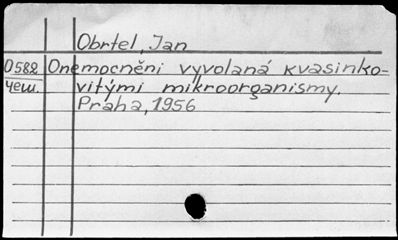 Obrtel, Jan
0582 Onemocněni vyvolaná kvasinko-
чеш. vitými mikroorganismy.
Praha, 1956